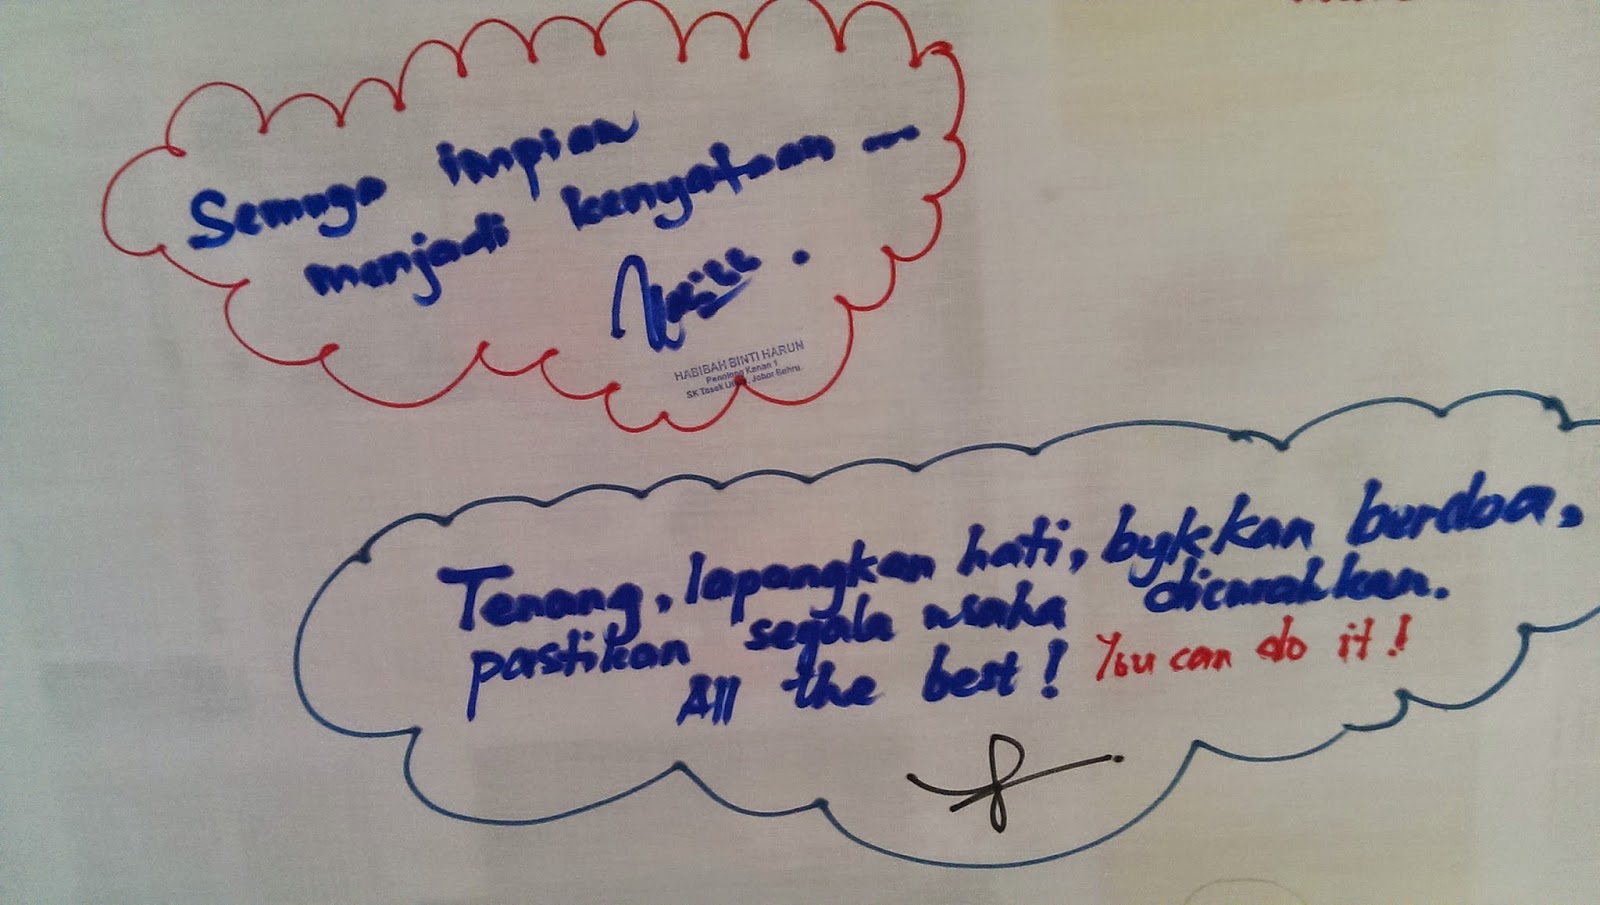 Semoga impian
menjadi kenyataan —
HABIBAH BINTI HARUN
Penolong Kanan 1
SK Tasek Utara, Johor Bahru.
Tenang, lapangkan hati, bykkan berdoa,
pastikan segala usaha dicurahkan.
All the best! You can do it!